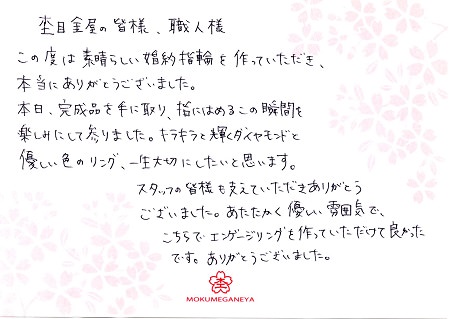 杢目金屋の皆様、職人様
この度は素晴らしい婚約指輪を作っていただき、
本当にありがとうございました。
本日、完成品を手に取り、指にはめるこの瞬間を
楽しみにして参りました。キラキラと輝くダイヤモンドと
優しい色のリング、一生大切にしたいと思います。
スタッフの皆様も支えていただきありがとう
ございました。あたたかく優しい雰囲気で、
こちらでエンゲージリングを作っていただけて良かった
です。ありがとうございました。
MOKUMEGANEYA